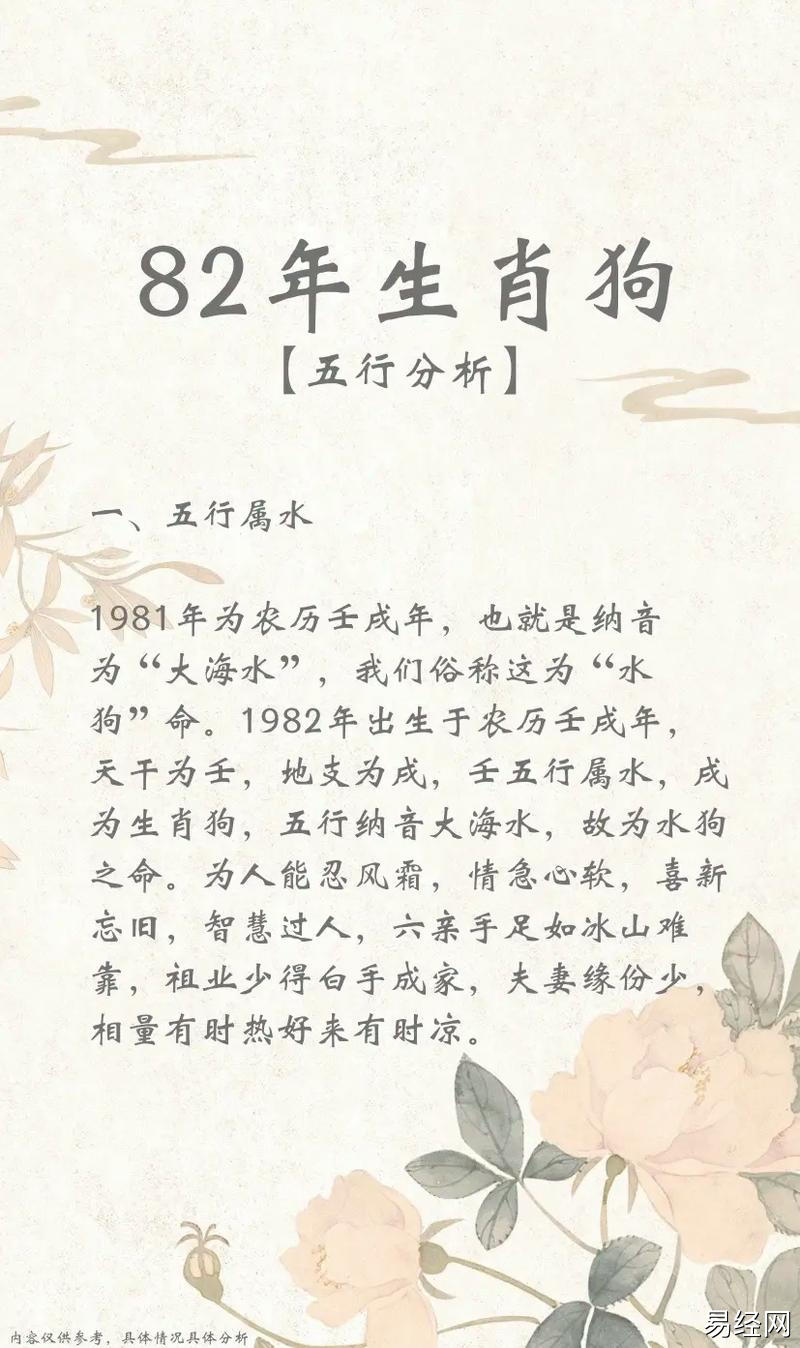 82年生肖狗
【五行分析】
一、五行属水
1981年为农历壬戌年，也就是纳音
为“大海水”，我们俗称这为“水
狗”命。1982年出生于农历壬戌年，
天干为壬，地支为戌，壬五行属水，戌
为生肖狗，五行纳音大海水，故为水狗
之命。为人能忍风霜，情急心软，喜新
忘旧，智慧过人，六亲手足如冰山难
靠，祖业少得白手成家，夫妻缘份少，
相量有时热好来有时凉。
内容仅供参考，具体情况具体分析
易经网